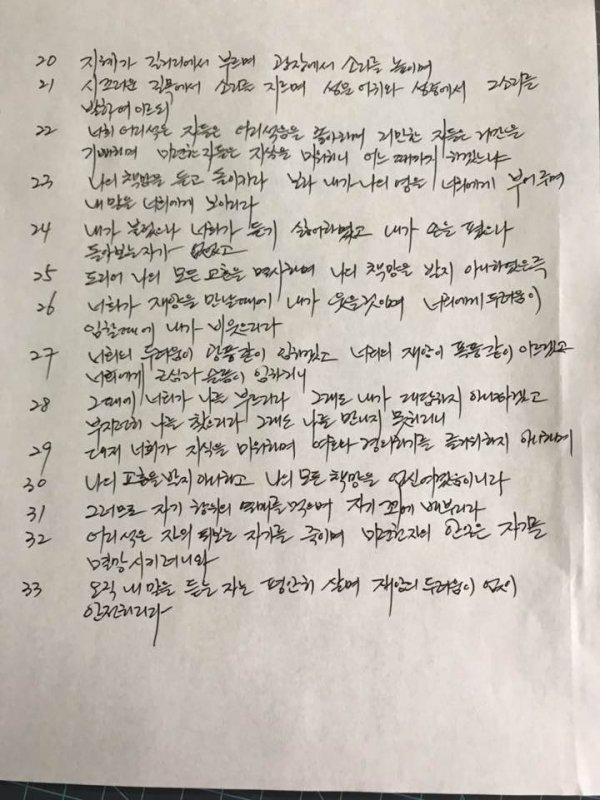 20 지혜가 길거리에서 부르며 광장에서 소리를 높이며
21 시끄러운 길목에서 소리를 지르며 성문 어귀와 성중에서 그 소리를
발하여 이르되
22 너희 어리석은 자들은 어리석음을 좋아하며 거만한 자들은 거만을
기뻐하며 미련한 자들은 지식을 미워하니 어느 때까지 하겠느냐
23 나의 책망을 듣고 돌이키라 보라 내가 나의 영을 너희에게 부어 주며
내 말을 너희에게 보이리라
24 내가 불렀으나 너희가 듣기 싫어하였고 내가 손을 폈으나
돌아보는 자가 없었고
25 도리어 나의 모든 교훈을 멸시하며 나의 책망을 받지 아니하였은즉
26 너희가 재앙을 만날 때에 내가 웃을 것이며 너희에게 두려움이
임할 때에 내가 비웃으리라
27 너희의 두려움이 광풍같이 임하겠고 너희의 재앙이 폭풍같이 이르겠고
너희에게 근심과 슬픔이 임하리니
28 그 때에 너희가 나를 부르리라 그래도 내가 대답하지 아니하겠고
부지런히 나를 찾으리라 그래도 나를 만나지 못하리니
29 대저 너희가 지식을 미워하며 여호와 경외하기를 즐거워하지 아니하며
30 나의 교훈을 받지 아니하고 나의 모든 책망을 업신여겼음이니라
31 그러므로 자기 행위의 열매를 먹으며 자기 꾀에 배부르리라
32 어리석은 자의 퇴보는 자기를 죽이며 미련한 자의 안일은 자기를
멸망시키려니와
33 오직 내 말을 듣는 자는 평안히 살며 재앙의 두려움이 없이
안전하리라